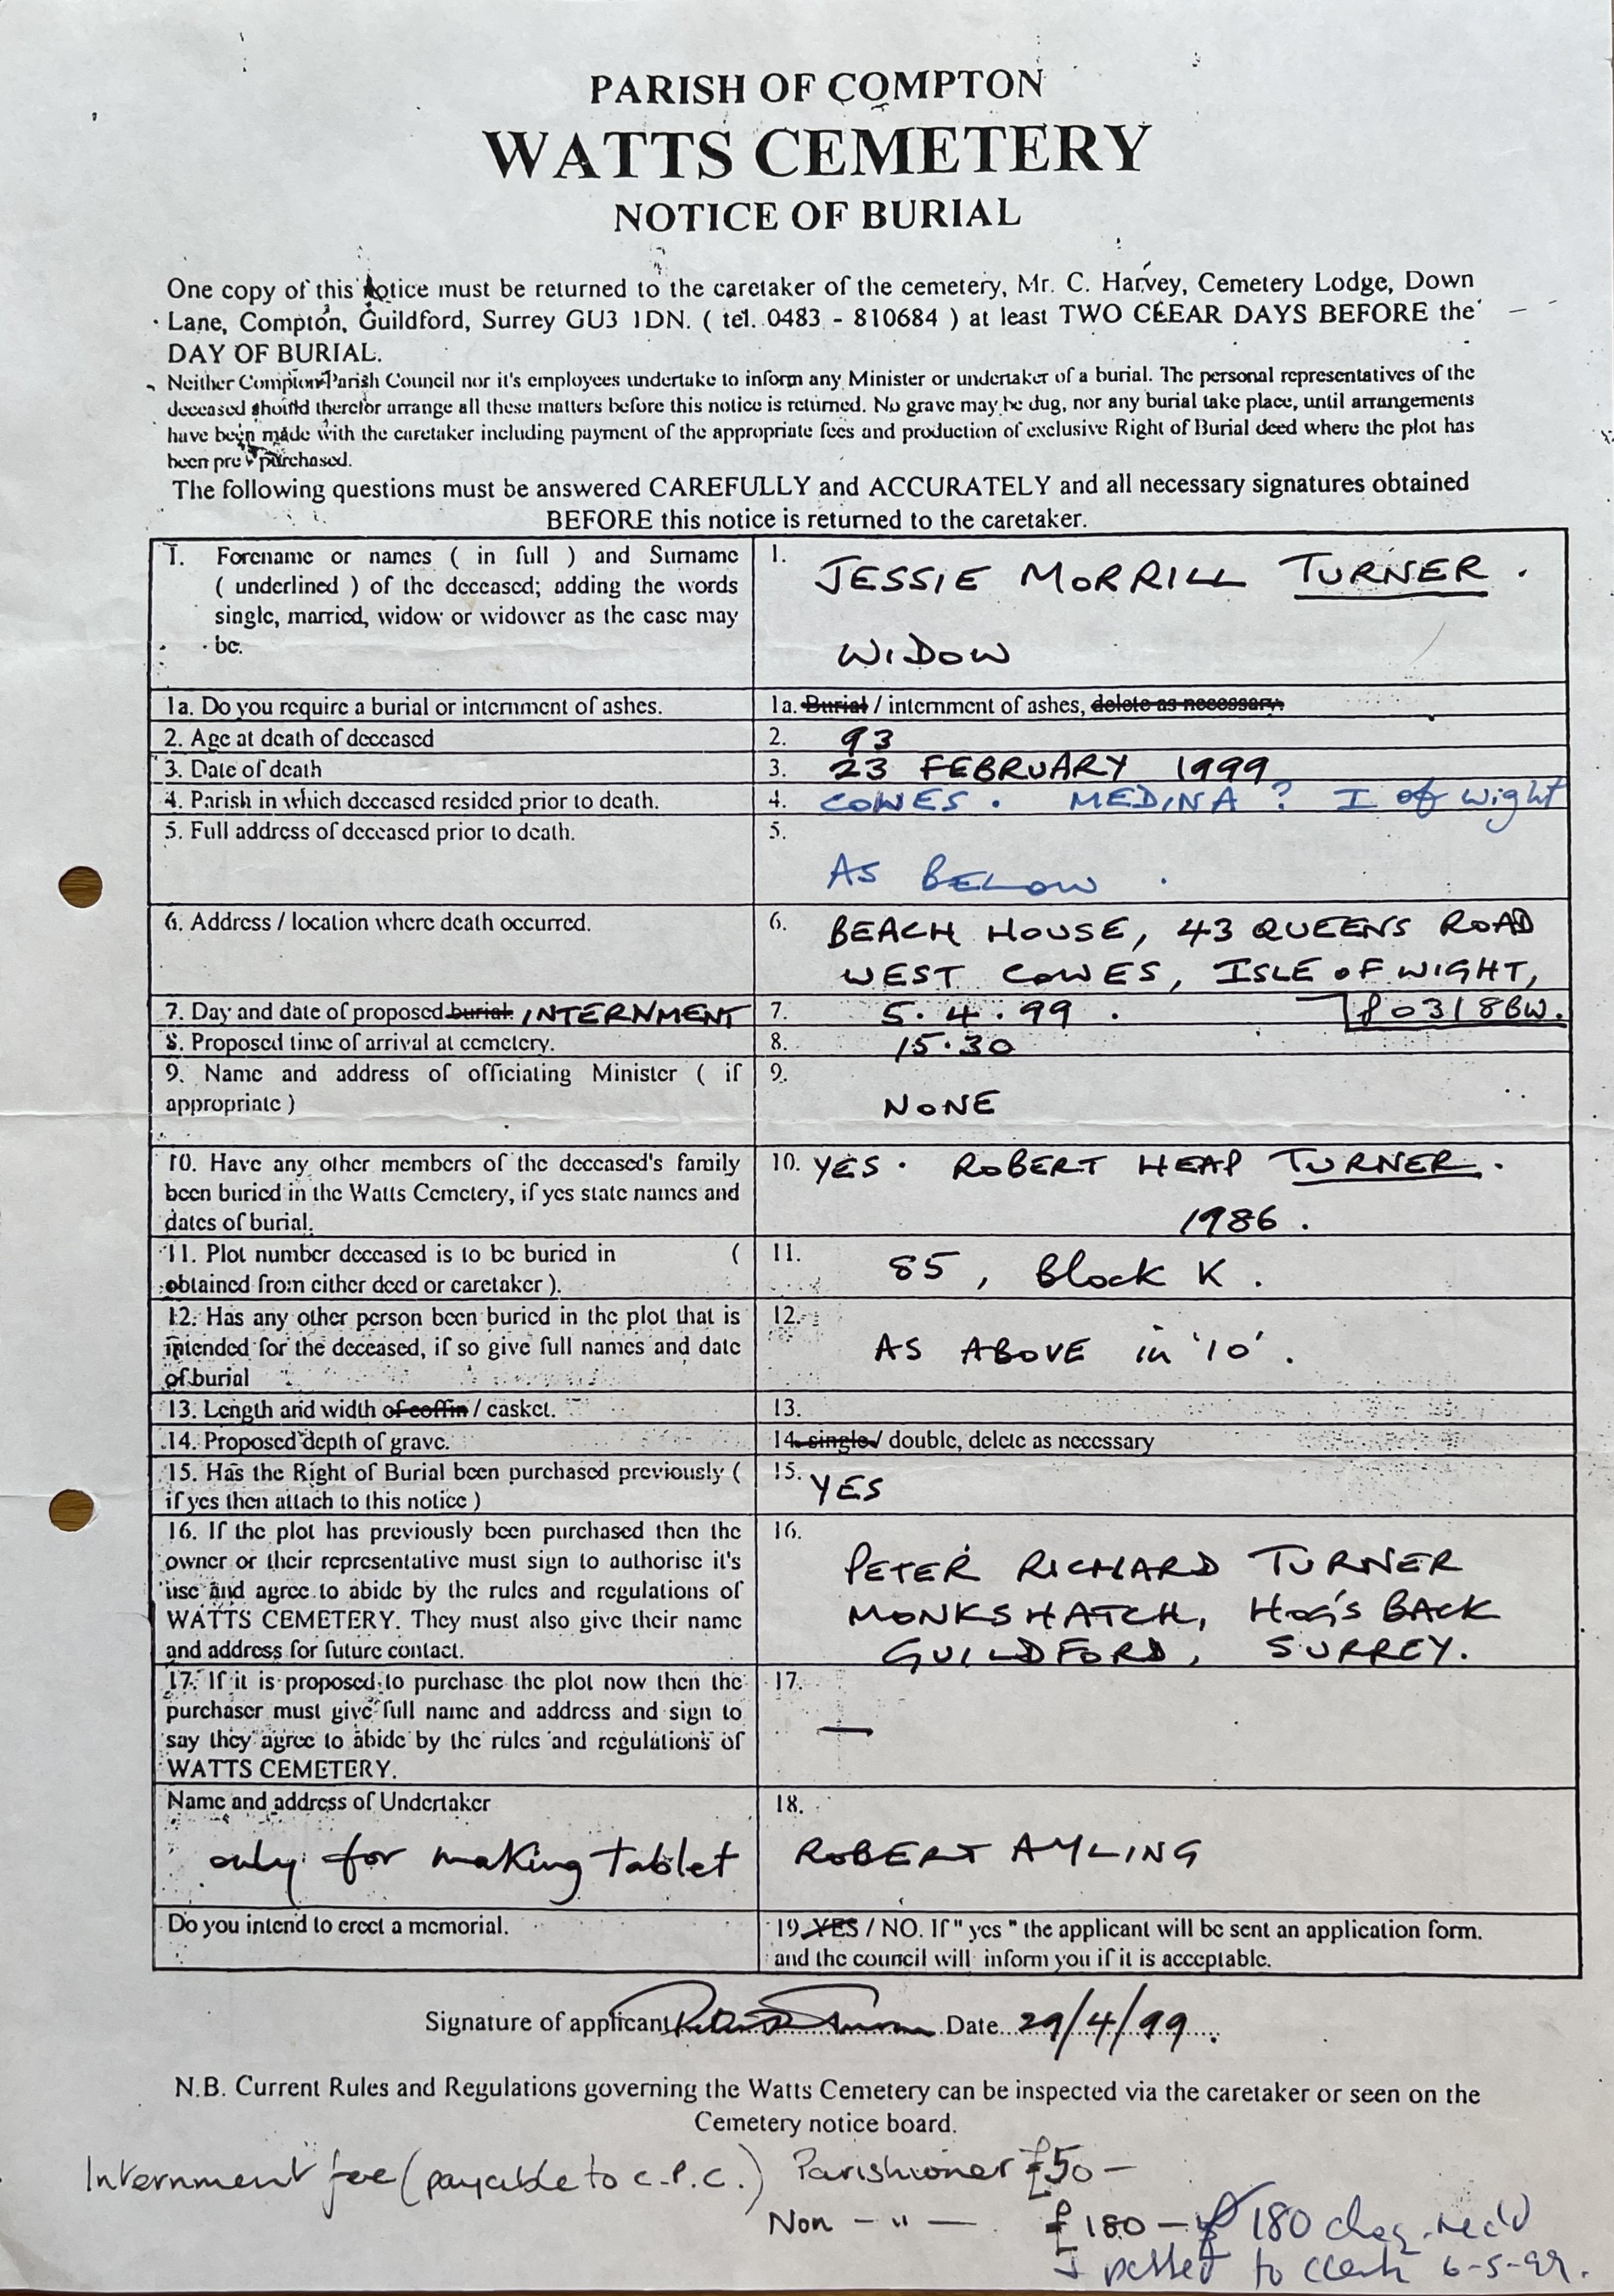 PARISH OF COMPTON
WATTS CEMETERY
NOTICE OF BURIAL
One copy of this notice must be returned to the caretaker of the cemetery, Mr. C. Harvey, Cemetery Lodge, Down
Lane, Compton, Guildford, Surrey GU3 1DN. ( tel. 0483 - 810684 ) at least TWO CLEAR DAYS BEFORE the
DAY OF BURIAL.
Neither Compton Parish Council nor it's employees undertake to inform any Minister or undertaker of a burial. The personal representatives of the
deceased should therefor arrange all these matters before this notice is returned. No grave may be dug, nor any burial take place, until arrangements
have been made with the caretaker including payment of the appropriate fees and production of exclusive Right of Burial deed where the plot has
been pre purchased.
The following questions must be answered CAREFULLY and ACCURATELY and all necessary signatures obtained
BEFORE this notice is returned to the caretaker.
1. Forename or names ( in full ) and Surname
( underlined ) of the deceased; adding the words
single, married, widow or widower as the case may
be.
1. JESSIE MORRILL TURNER .
WIDOW
1a. Do you require a burial or internment of ashes.
1a. Burial / internment of ashes, delete as necessary.
2. Age at death of deceased
2. 93
3. Date of death
3. 23 FEBRUARY 1999
4. Parish in which deceased resided prior to death.
4. COWES . MEDINA ? I of Wight
5. Full address of deceased prior to death.
5.
AS BELOW .
6. Address / location where death occurred.
6. BEACH HOUSE, 43 QUEENS ROAD
WEST COWES, ISLE OF WIGHT,
PO318BW.
7. Day and date of proposed burial. INTERNMENT
7. 5.4.99 .
8. Proposed time of arrival at cemetery.
8. 15.30
9. Name and address of officiating Minister ( if
appropriate )
9.
NONE
10. Have any other members of the deceased's family
been buried in the Watts Cemetery, if yes state names and
dates of burial.
10. YES . ROBERT HEAP TURNER .
1986 .
11. Plot number deceased is to be buried in (
obtained from either deed or caretaker ).
11. 85, Block K .
12. Has any other person been buried in the plot that is
intended for the deceased, if so give full names and date
of burial
12.
AS ABOVE in '10' .
13. Length and width of coffin / casket.
13.
14. Proposed depth of grave.
14. single / double, delete as necessary
15. Has the Right of Burial been purchased previously (
if yes then attach to this notice )
15. YES
16. If the plot has previously been purchased then the
owner or their representative must sign to authorise it's
use and agree to abide by the rules and regulations of
WATTS CEMETERY. They must also give their name
and address for future contact.
16.
PETER RICHARD TURNER
MONKSHATCH, HOG'S BACK
GUILDFORD, SURREY.
17. If it is proposed to purchase the plot now then the
purchaser must give full name and address and sign to
say they agree to abide by the rules and regulations of
WATTS CEMETERY.
17.
—
Name and address of Undertaker
only for making tablet
18.
ROBERT AYLING
Do you intend to erect a memorial.
19. YES / NO. If " yes " the applicant will be sent an application form.
and the council will inform you if it is acceptable.
Signature of applicant Date 29/4/99.
N.B. Current Rules and Regulations governing the Watts Cemetery can be inspected via the caretaker or seen on the
Cemetery notice board.
Internment fee (payable to C.P.C.) Parishioner £50 —
Non — " — £180 — £180 cheq. rec'd
& passed to clerk 6-5-99.